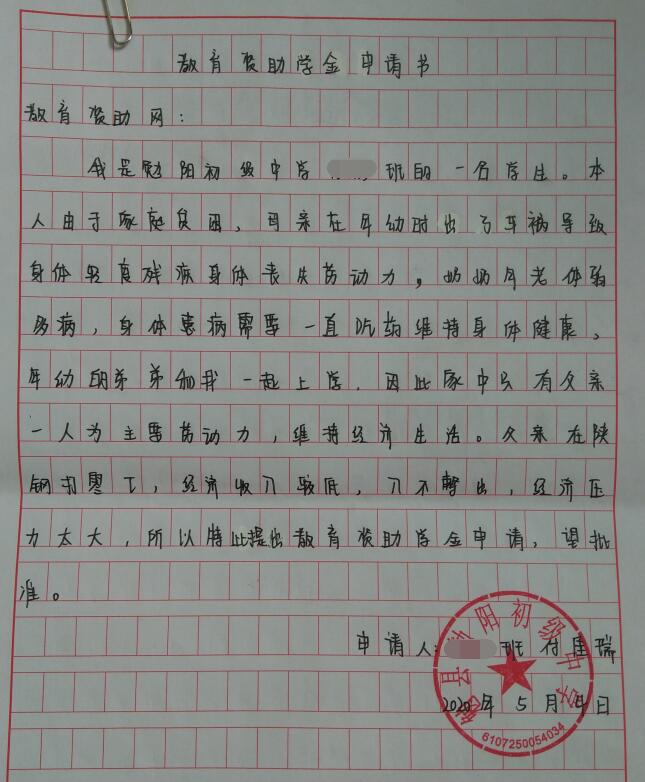 教育资助学金申请书
教育资助网：
我是勉阳初级中学 班的一名学生。本
人由于家庭贫困，母亲在年幼时出了车祸导致
身体轻度残疾身体丧失劳动力，奶奶年老体弱
多病，身体患病需要一直吃药维持身体健康、
年幼的弟弟和我一起上学，因此家中只有父亲
一人为主要劳动力，维持经济生活。父亲在陕
钢打零工，经济收入较低，入不敷出，经济压
力太大，所以特此提出教育资助学金申请，望批
准。
申请人： 班 付 瑞
2020年5月4日
勉县勉阳初级中学
6107250054034